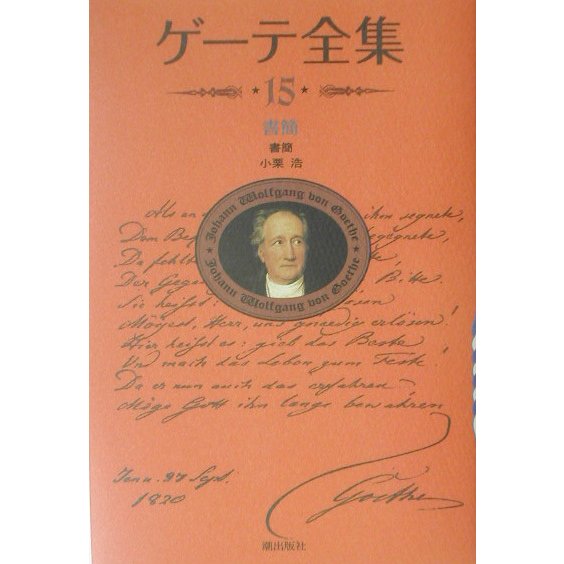 ゲーテ全集
15
書簡
書簡
小栗 浩
Johann Wolfgang von Goethe
Johann Wolfgang von Goethe
Als an ihm segnete,
Dem Be gegnete,
Da fehlt te,
Der Gegen Bitte.
Sie heifst: esen
Möget, Herr, uns gnaedig erlösen!
Hier heifst es: gieb das Beste
Und mach das Leben zum Feste!
Da er nun auch das erfahren
Möge Gott ihn lange bewahren
Jena. 27 Sept.
1820
Goethe
潮出版社